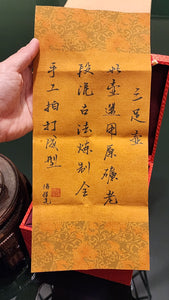 三足壶
此壶选用原矿老
段泥古法炼制全
手工拍打成型